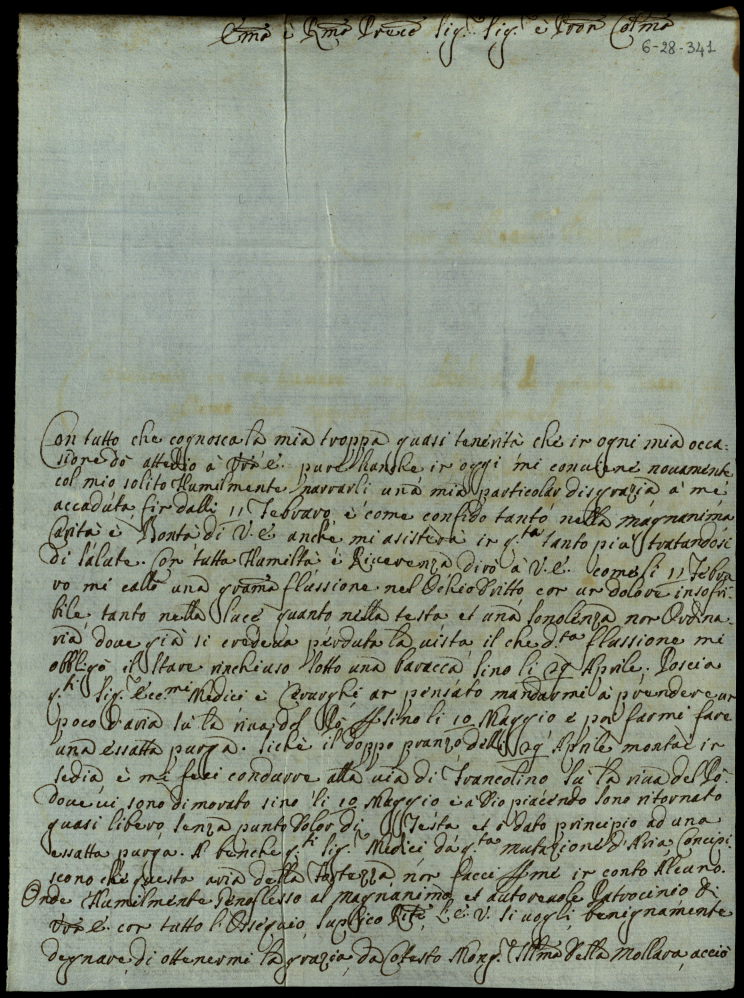 Em̃o è Rm̃o Prñe Sig.r Sig.r è Pron Colmo
6-28-341
Con tutto che cognosca la mia troppa quasi tenerità che ir ogni mia occa-
sione dò attedio à V.ê pure hanche ir oggi mi conviene novamente
col mio solito Humilmente narrarli una mia particolar disgrazia à me
accaduta fir dalli 11 Febbraro, è come confido tanto nella magnanima
Carità è Bontà di V.ê anche mi asisterà ir q.ta tanto più tratandosi
di salute. Con tutta Humiltà è Riverenza dirò à V.ê come li 11 Febra
ro mi callò una grama flussione nel Ochio dritto cor ur dolore insofri-
bile tanto nella luce quanto nella testa et una sonolenza nor Ordina-
ria dove già si credeva perduta la vista il che d.ta flussione mi
obbligò il stare rinchiuso sotto una baracca sino li 29 Aprile. Poscia
q.ti Sig.ri Ecc.mi Medici è Cerurghi ar pensato mandarmi à prendere ur
poco d'aria sù la riva del Pò sino li 10 Maggio è poi farmi fare
una essatta purga. Sichè il doppo pranzo delli 29 Aprile montai ir
sedia è mi feci condurre alla via di Francolino sù la riva del Pò.
dove vi sono dimorato sino li 10 Maggio è a Dio piacendo sono ritornato
quasi libero senza punto dolor di Testa et ò dato principio ad una
essatta purga. A benche q.ti Sig.ri Medici da q.ta mutazione d'Aria Concipi-
scono che questa aria della Fortezza nor facci p me ir conto Alcuno.
Onde Humilmente Genoflesso al magnanimo et autorevole Patrocinio di
V.ê cor tutto l'Ossequio suplico L'ê.V. si vogli benignamente
degnare di ottenermi la grazia da Cotesto Mong.r Illmo della Mollara, acciò